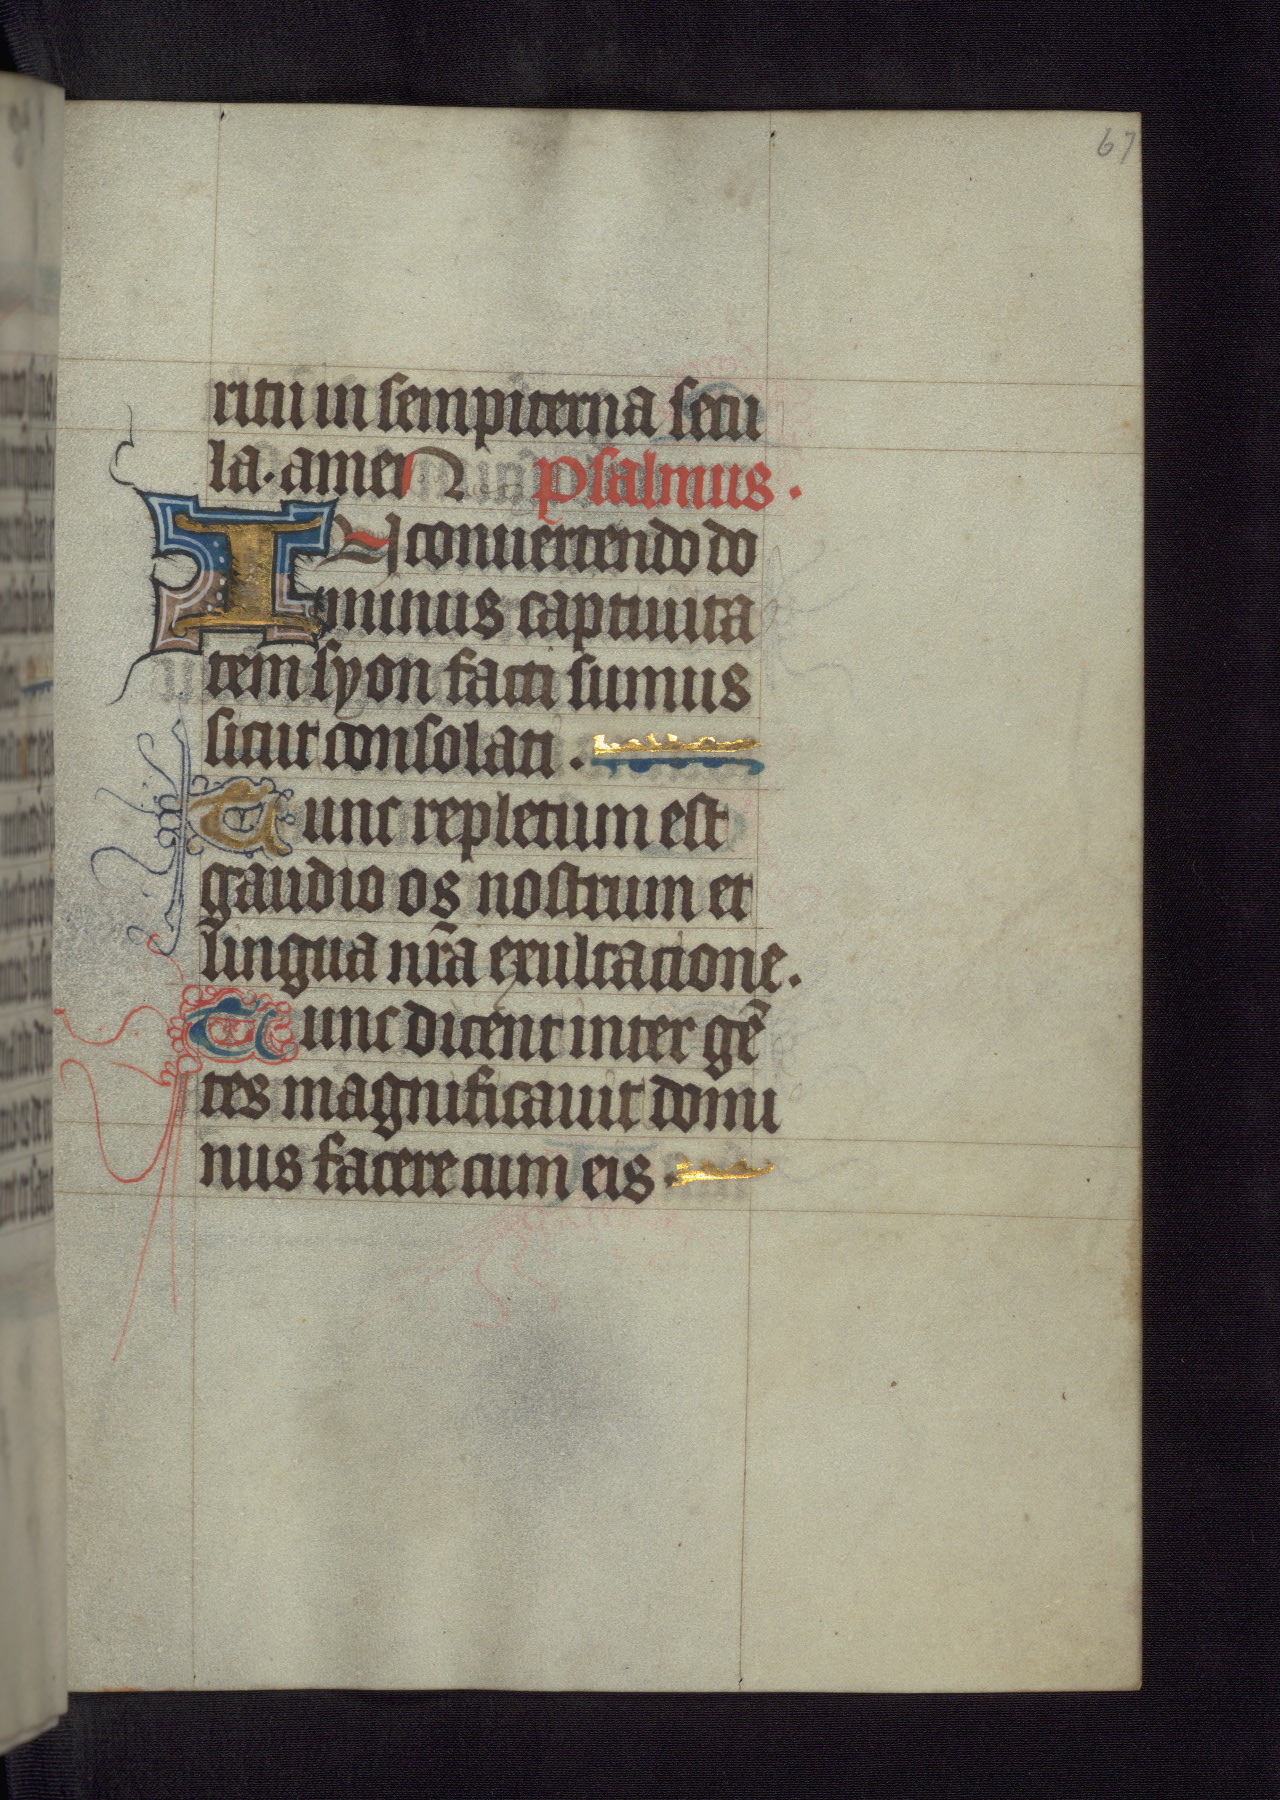 67
ritu in sempiterna secu
la. amen Psalmus.
IN conuertendo do
minus captiuita
tem syon facti sumus
sicut consolati.
Tunc repletum est
gaudio os nostrum et
lingua nr̄a exultacione.
Tunc dicent inter gē
tes magnificauit domi
nus facere cum eis.